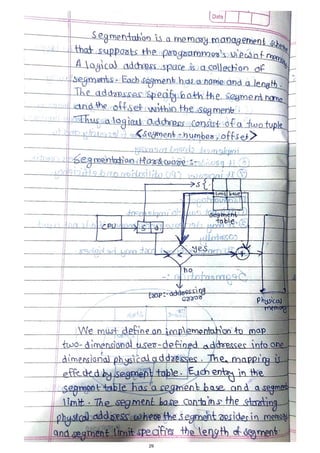 Date
Segmentation is a memory management scheme
that supports the programmer's view of memory
A logical address space is a collection of
segments. Each segment has a name and a length.
The addresses specify both the segment name
and the offset within the segment.
Thus a logical address consist of a two tuple
<segment-number, offset>
Segmentation Hardware :-
s {
segment
table.
CPU
s d
< yes +
no
trap:- addressing
error
Physical
memory
We must define an implementation to map
two-dimensional user-defined addresses into one
dimensional physical addresses. The mapping is
effected by segment table. Each entry in the
segment table has a segment base and a segment
limit. The segment base contains the starting
physical address where the segment resides in memory
and segment limit specifies the length of segment